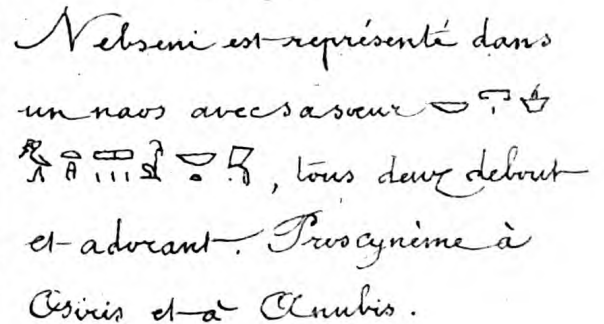 Nebseni est représenté dans
un naos avec sa sœur
, tous deux debout
et adorant. Proscynème à
Osiris et à Anubis.